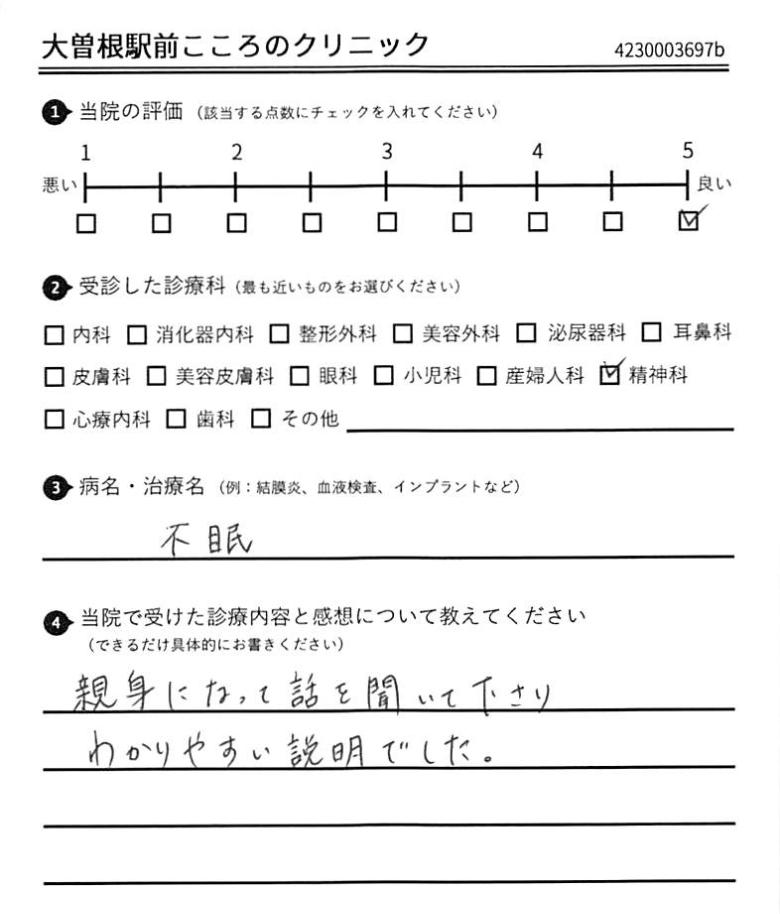 大曽根駅前こころのクリニック 4230003697b
1 当院の評価 (該当する点数にチェックを入れてください)
1 2 3 4 5
悪い 良い
☐ ☐ ☐ ☐ ☐ ☐ ☐ ☐ ☑
2 受診した診療科 (最も近いものをお選びください)
☐ 内科 ☐ 消化器内科 ☐ 整形外科 ☐ 美容外科 ☐ 泌尿器科 ☐ 耳鼻科
☐ 皮膚科 ☐ 美容皮膚科 ☐ 眼科 ☐ 小児科 ☐ 産婦人科 ☑ 精神科
☐ 心療内科 ☐ 歯科 ☐ その他
3 病名・治療名 (例：結膜炎、血液検査、インプラントなど)
不眠
4 当院で受けた診療内容と感想について教えてください
(できるだけ具体的にお書きください)
親身になって話を聞いて下さり
わかりやすい説明でした。